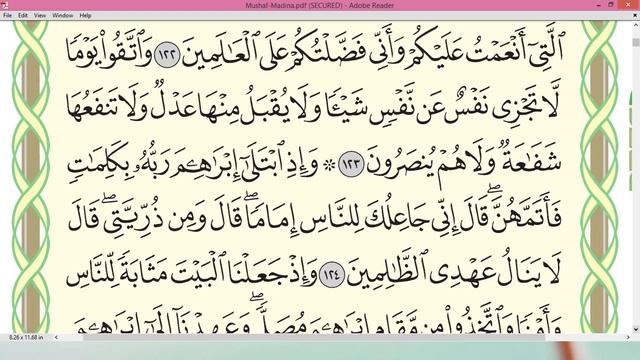 Mushaf-Madina.pdf (SECURED) - Adobe Reader
File Edit View Window Help
ٱلَّتِيٓ أَنۡعَمۡتُ عَلَيۡكُمۡ وَأَنِّي فَضَّلۡتُكُمۡ عَلَى ٱلۡعَٰلَمِينَ ١٢٢ وَٱتَّقُواْ يَوۡمٗا
لَّا تَجۡزِي نَفۡسٌ عَن نَّفۡسٖ شَيۡـٔٗا وَلَا يُقۡبَلُ مِنۡهَا عَدۡلٞ وَلَا تَنفَعُهَا
شَفَٰعَةٞ وَلَا هُمۡ يُنصَرُونَ ١٢٣ ۞ وَإِذِ ٱبۡتَلَىٰٓ إِبۡرَٰهِـۧمَ رَبُّهُۥ بِكَلِمَٰتٖ
فَأَتَمَّهُنَّۖ قَالَ إِنِّي جَاعِلُكَ لِلنَّاسِ إِمَامٗاۖ قَالَ وَمِن ذُرِّيَّتِيۖ قَالَ
لَا يَنَالُ عَهۡدِي ٱلظَّٰلِمِينَ ١٢٤ وَإِذۡ جَعَلۡنَا ٱلۡبَيۡتَ مَثَابَةٗ لِّلنَّاسِ
وَأَمۡنٗا وَٱتَّخِذُواْ مِن مَّقَامِ إِبۡرَٰهِـۧمَ مُصَلّٗىۖ وَعَهِدۡنَآ إِلَىٰٓ إِبۡرَٰهِـۧمَ
8.26 x 11.68 in